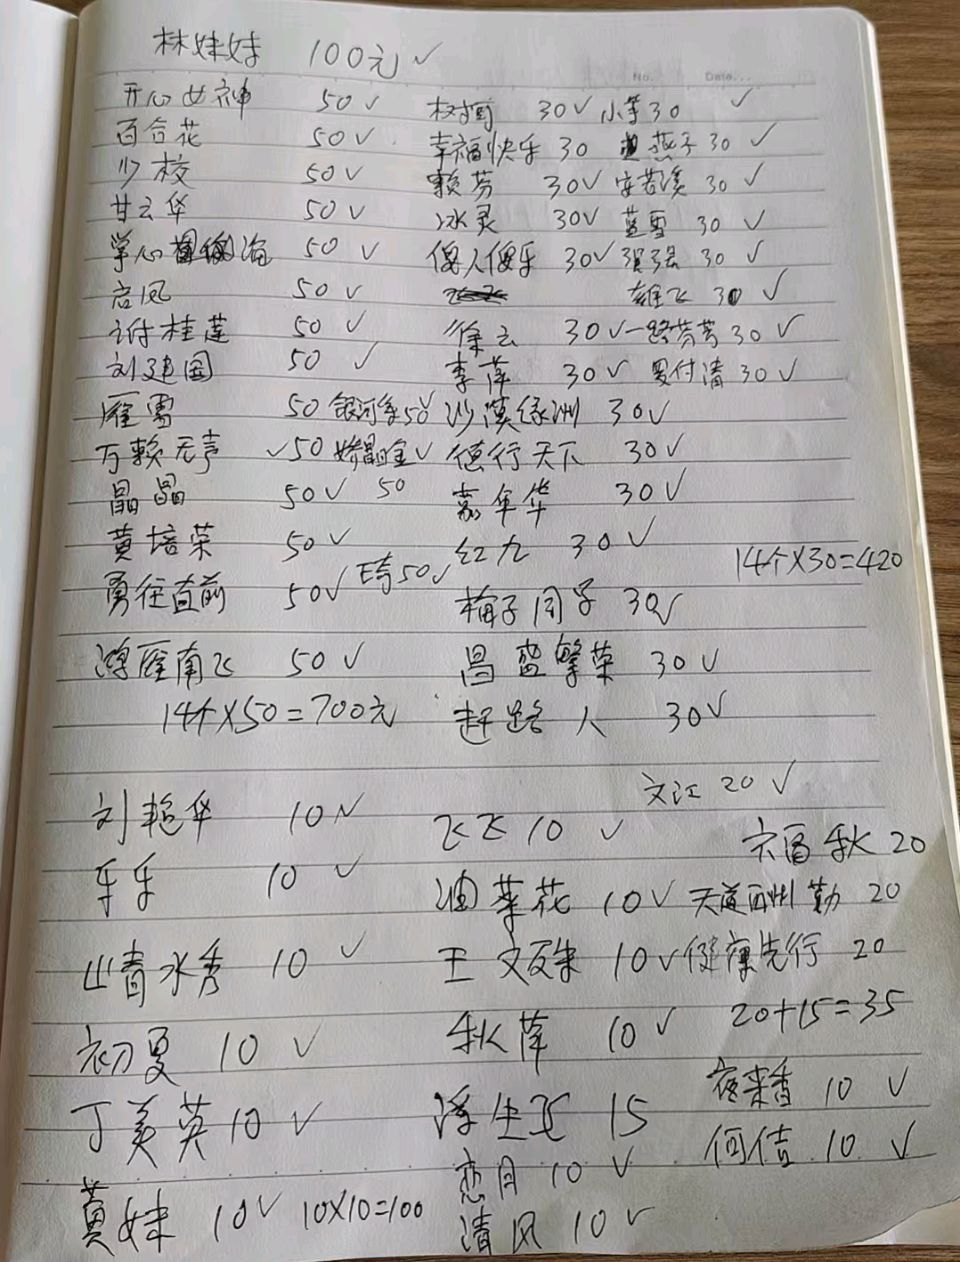 林妹妹 100元 ✓
No. Date...
开心女神 50 ✓ 30 ✓ 小等 30 ✓
百合花 50 ✓ 幸福快乐 30 燕子 30 ✓
少校 50 ✓ 赖芬 30 ✓ 安若溪 30 ✓
甘云华 50 ✓ 冰灵 30 ✓ 蓝雪 30 ✓
学心 海 50 ✓ 傻人傻乐 30 ✓ 贺强 30 ✓
启风 50 ✓ 雄飞 30 ✓
谢桂莲 50 ✓ 徐云 30 ✓ 一路芬芳 30 ✓
刘建国 50 ✓ 李萍 30 ✓ 罗付清 30 ✓
雁雪 50 银河系 50 ✓ 沙漠绿洲 30 ✓
万赖无声 ✓ 50 ✓ 德行天下 30 ✓
晶晶 50 ✓ 50 嘉年华 30 ✓
黄培荣 50 ✓ 红九 30 ✓
14个×30=420
勇往直前 50 ✓ 50 ✓ 梅子同学 30 ✓
鸿雁南飞 50 ✓ 昌盛繁荣 30 ✓
14个×50=700元 赶路人 30 ✓
文江 20 ✓
刘艳华 10 ✓ 飞飞 10 ✓ 秋 20
乐乐 10 ✓ 油菜花 10 ✓ 天道酬勤 20
山青水秀 10 ✓ 王文殊 10 ✓ 健康先行 20
20+15=35
初夏 10 ✓ 秋萍 10 ✓
夜来香 10 ✓
丁美英 10 ✓ 浮生 15 何佶 10 ✓
恋月 10 ✓
黄妹 10 ✓ 10×10=100 清风 10 ✓